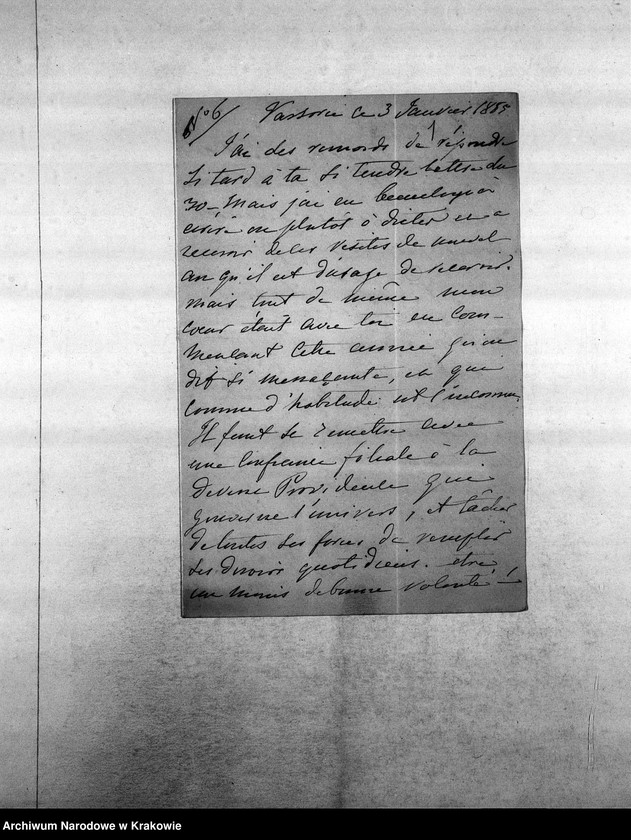 N° 6/ Varsovie ce 3 Janvier 1885
J'ai des remords de répondre
si tard à ta si tendre lettre du
30 – Mais j'ai eu beaucoup à
écrire ou plutôt à dicter et a
recevoir de les visites de nouvel
an qu'il est d'usage de recevoir.
mais tout de même mon
cœur était avec toi en com-
mencant cette année qu'on
dit si menaçante, et qui
comme d'habitude est l'inconnu.
Il faut se remettre avec
une confiance filiale à la
divine Providence qui
gouverne l'univers, et tâcher
de toutes ses forces de remplir
ses devoirs quotidiens. être
au moins de bonne volonté !
Archiwum Narodowe w Krakowie